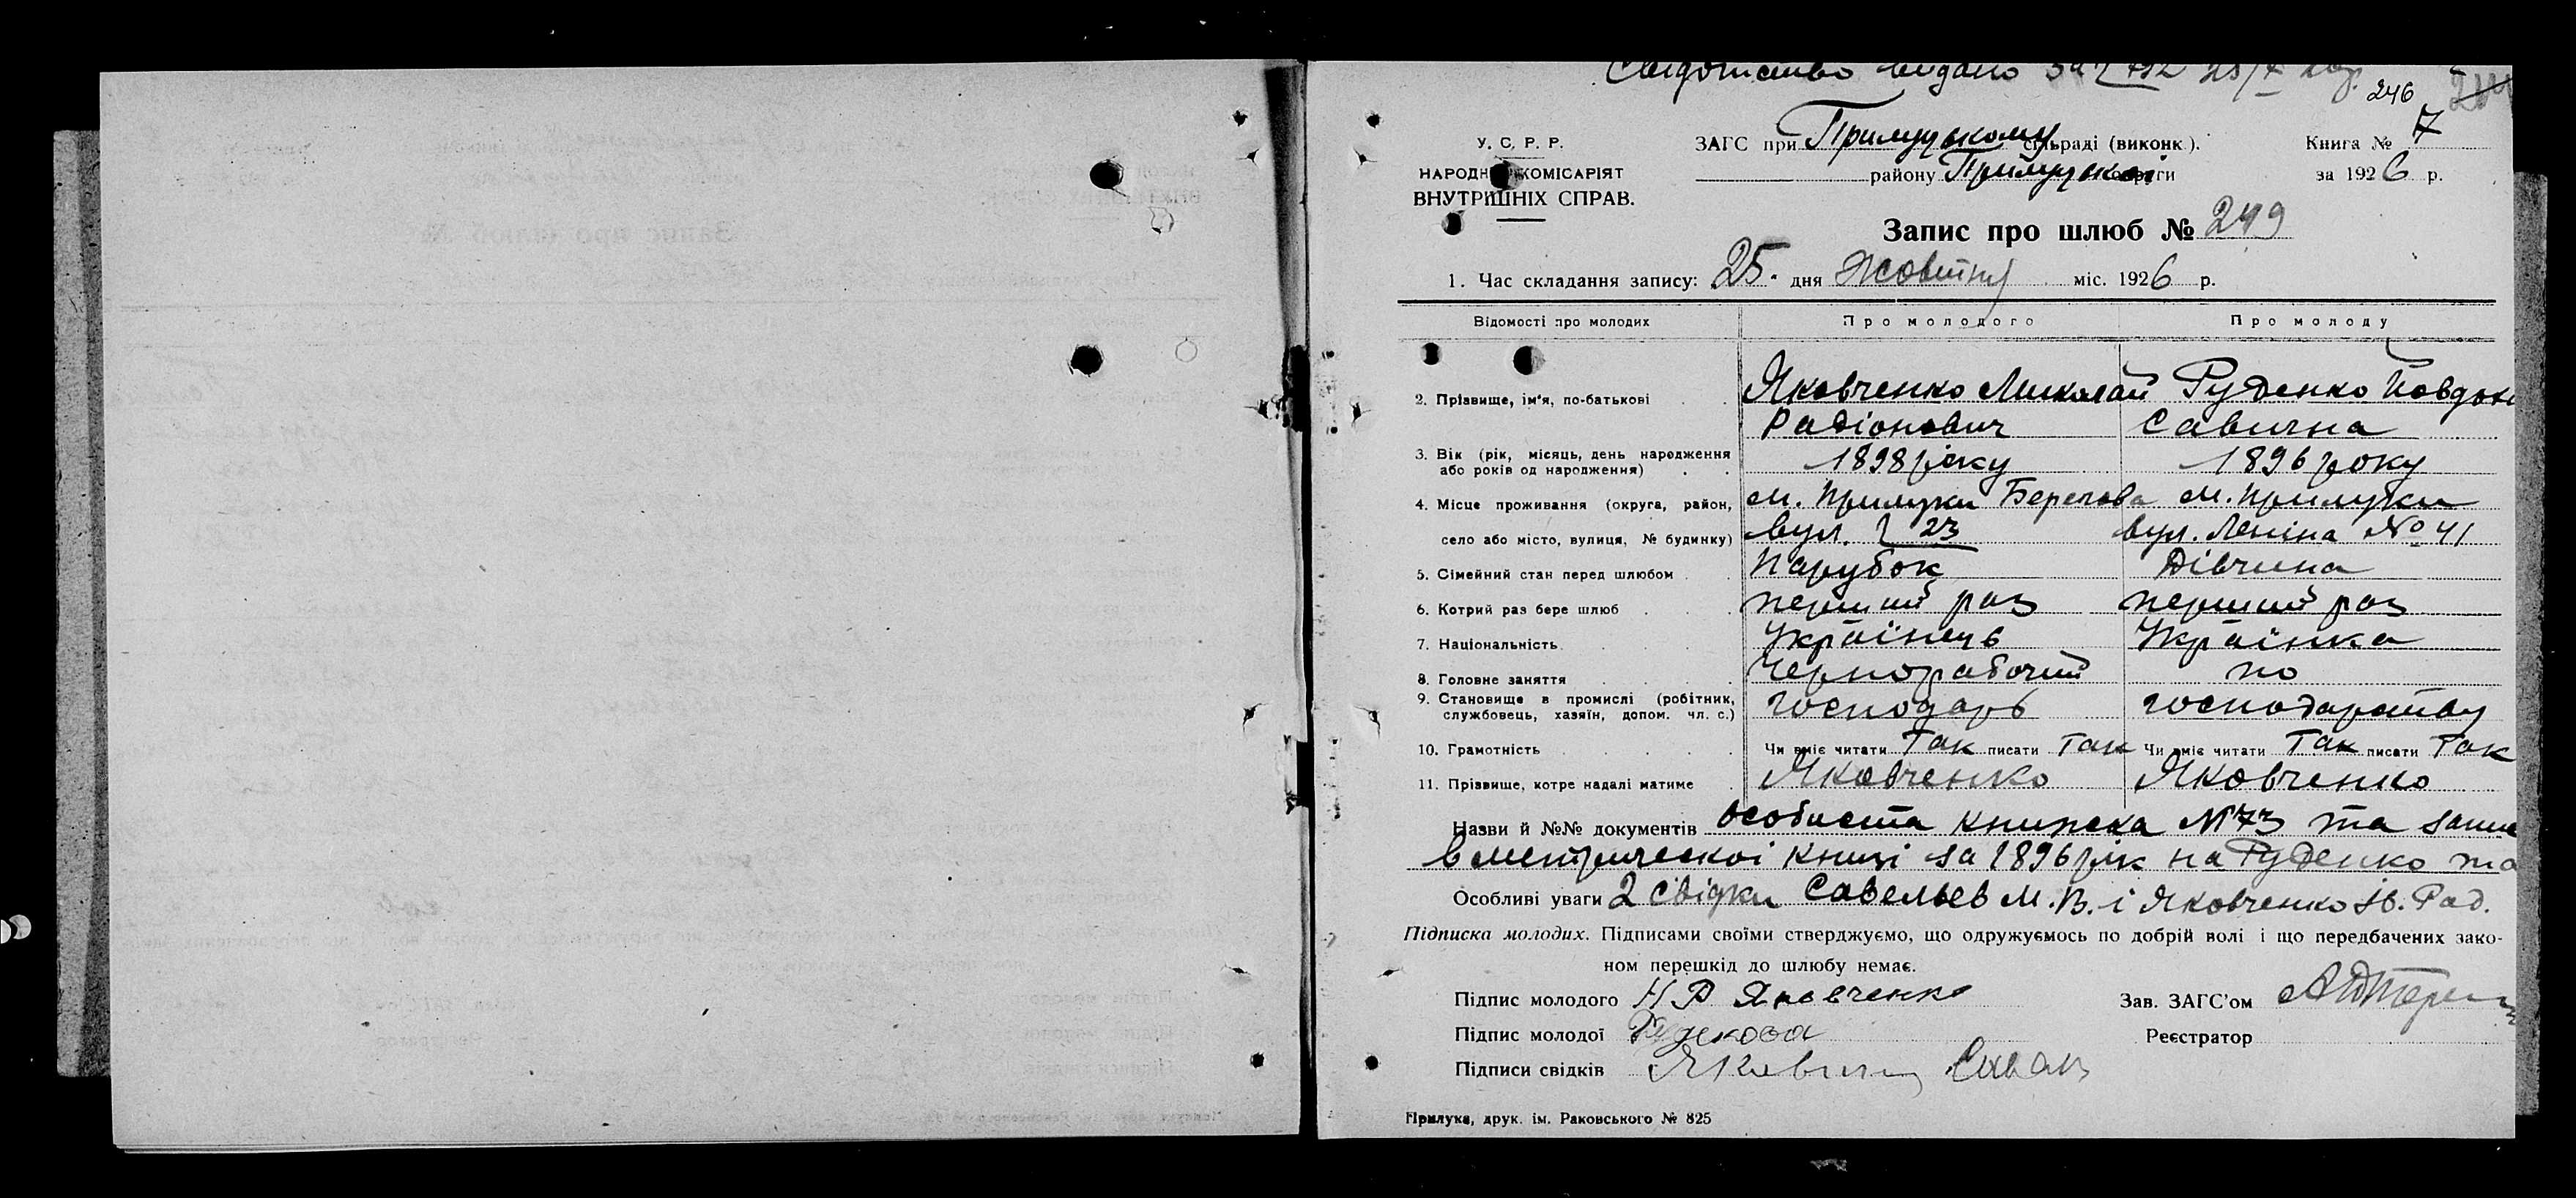 Свідотство видано
246
У. С. Р. Р.
НАРОДН КОМІСАРІЯТ
ВНУТРІШНІХ СПРАВ.
ЗАГС при Прилуцькому сільраді (виконк.).
району Прилуцької округи
Книга № 7
за 1926 р.
Запис про шлюб № 249
1. Час складання запису: 25 дня Жовтня міс. 1926 р.
Відомості про молодих Про молодого Про молоду
2. Прізвище, ім'я, по-батькові Яковченко Миколай Руденко Йовдох
Радіонович Савична
3. Вік (рік, місяць, день народження
або років од народження) 1898 року 1896 року
4. Місце проживання (округа, район, м. Прилуки Берегова м. Прилуки
село або місто, вулиця, № будинку) вул. 23 вул. Леніна № 41
5. Сімейний стан перед шлюбом Парубок Дівчина
6. Котрий раз бере шлюб перший раз перший раз
7. Національність Українець Українка
8. Головне заняття чернорабочий по
9. Становище в промислі (робітник,
службовець, хазяїн, допом. чл. с.) господарь господарству
10. Грамотність Чи вміє читати Так писати Так Чи вміє читати Так писати Так
11. Прізвище, котре надалі матиме Яковченко Яковченко
Назви й №№ документів особиста книжка № 73 та запис
в метрической книзі за 1896 рік на Руденко та
Особливі уваги 2 свідки Савельев М. В. і Яковченко Ів. Рад.
Підписка молодих. Підписами своїми стверджуємо, що одружуємось по добрій волі і що передбачених зако-
ном перешкід до шлюбу немає.
Підпис молодого Н Р Яковченко
Зав. ЗАГС'ом
Підпис молодої
Реєстратор
Підписи свідків
Прилука, друк. ім. Раковського № 825